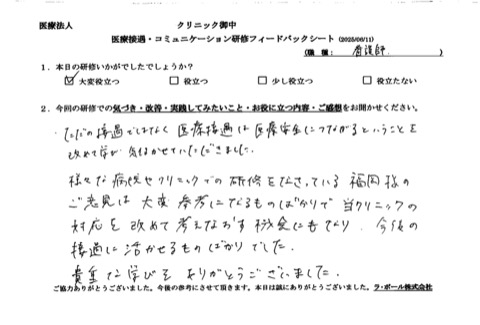 医療法人 クリニック御中
医療接遇・コミュニケーション研修フィードバックシート (2025/06/11)
(職 種: 看護師 )
1. 本日の研修いかがでしたでしょうか?
☑ 大変役立つ □ 役立つ □ 少し役立つ □ 役立たない
2. 今回の研修での気づき・改善・実践してみたいこと・お役に立つ内容・ご感想をお聞かせください。
・ただの接遇ではなく 医療接遇は医療安全につながるということを
改めて学び 気付かせていただきました。
様々な病院やクリニックでの研修をなさっている 福岡様の
ご意見は 大変 参考になるものばかりで 当クリニックの
対応を改めて考えなおす 機会にもなり、今後の
接遇に活かせるものばかりでした。
貴重な学びを ありがとうございました。
ご協力ありがとうございました。今後の参考にさせて頂きます。本日は誠にありがとうございました。ラ・ポール株式会社